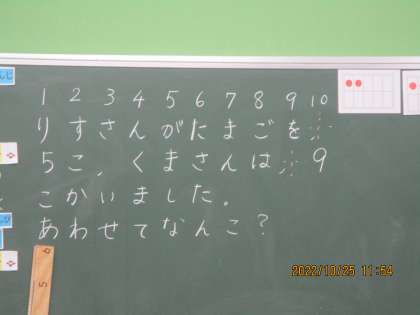 1 2 3 4 5 6 7 8 9 10
りすさんがたまごを
5こ、くまさんは 9
こかいました。
あわせてなんこ?
2022/10/25 11:54